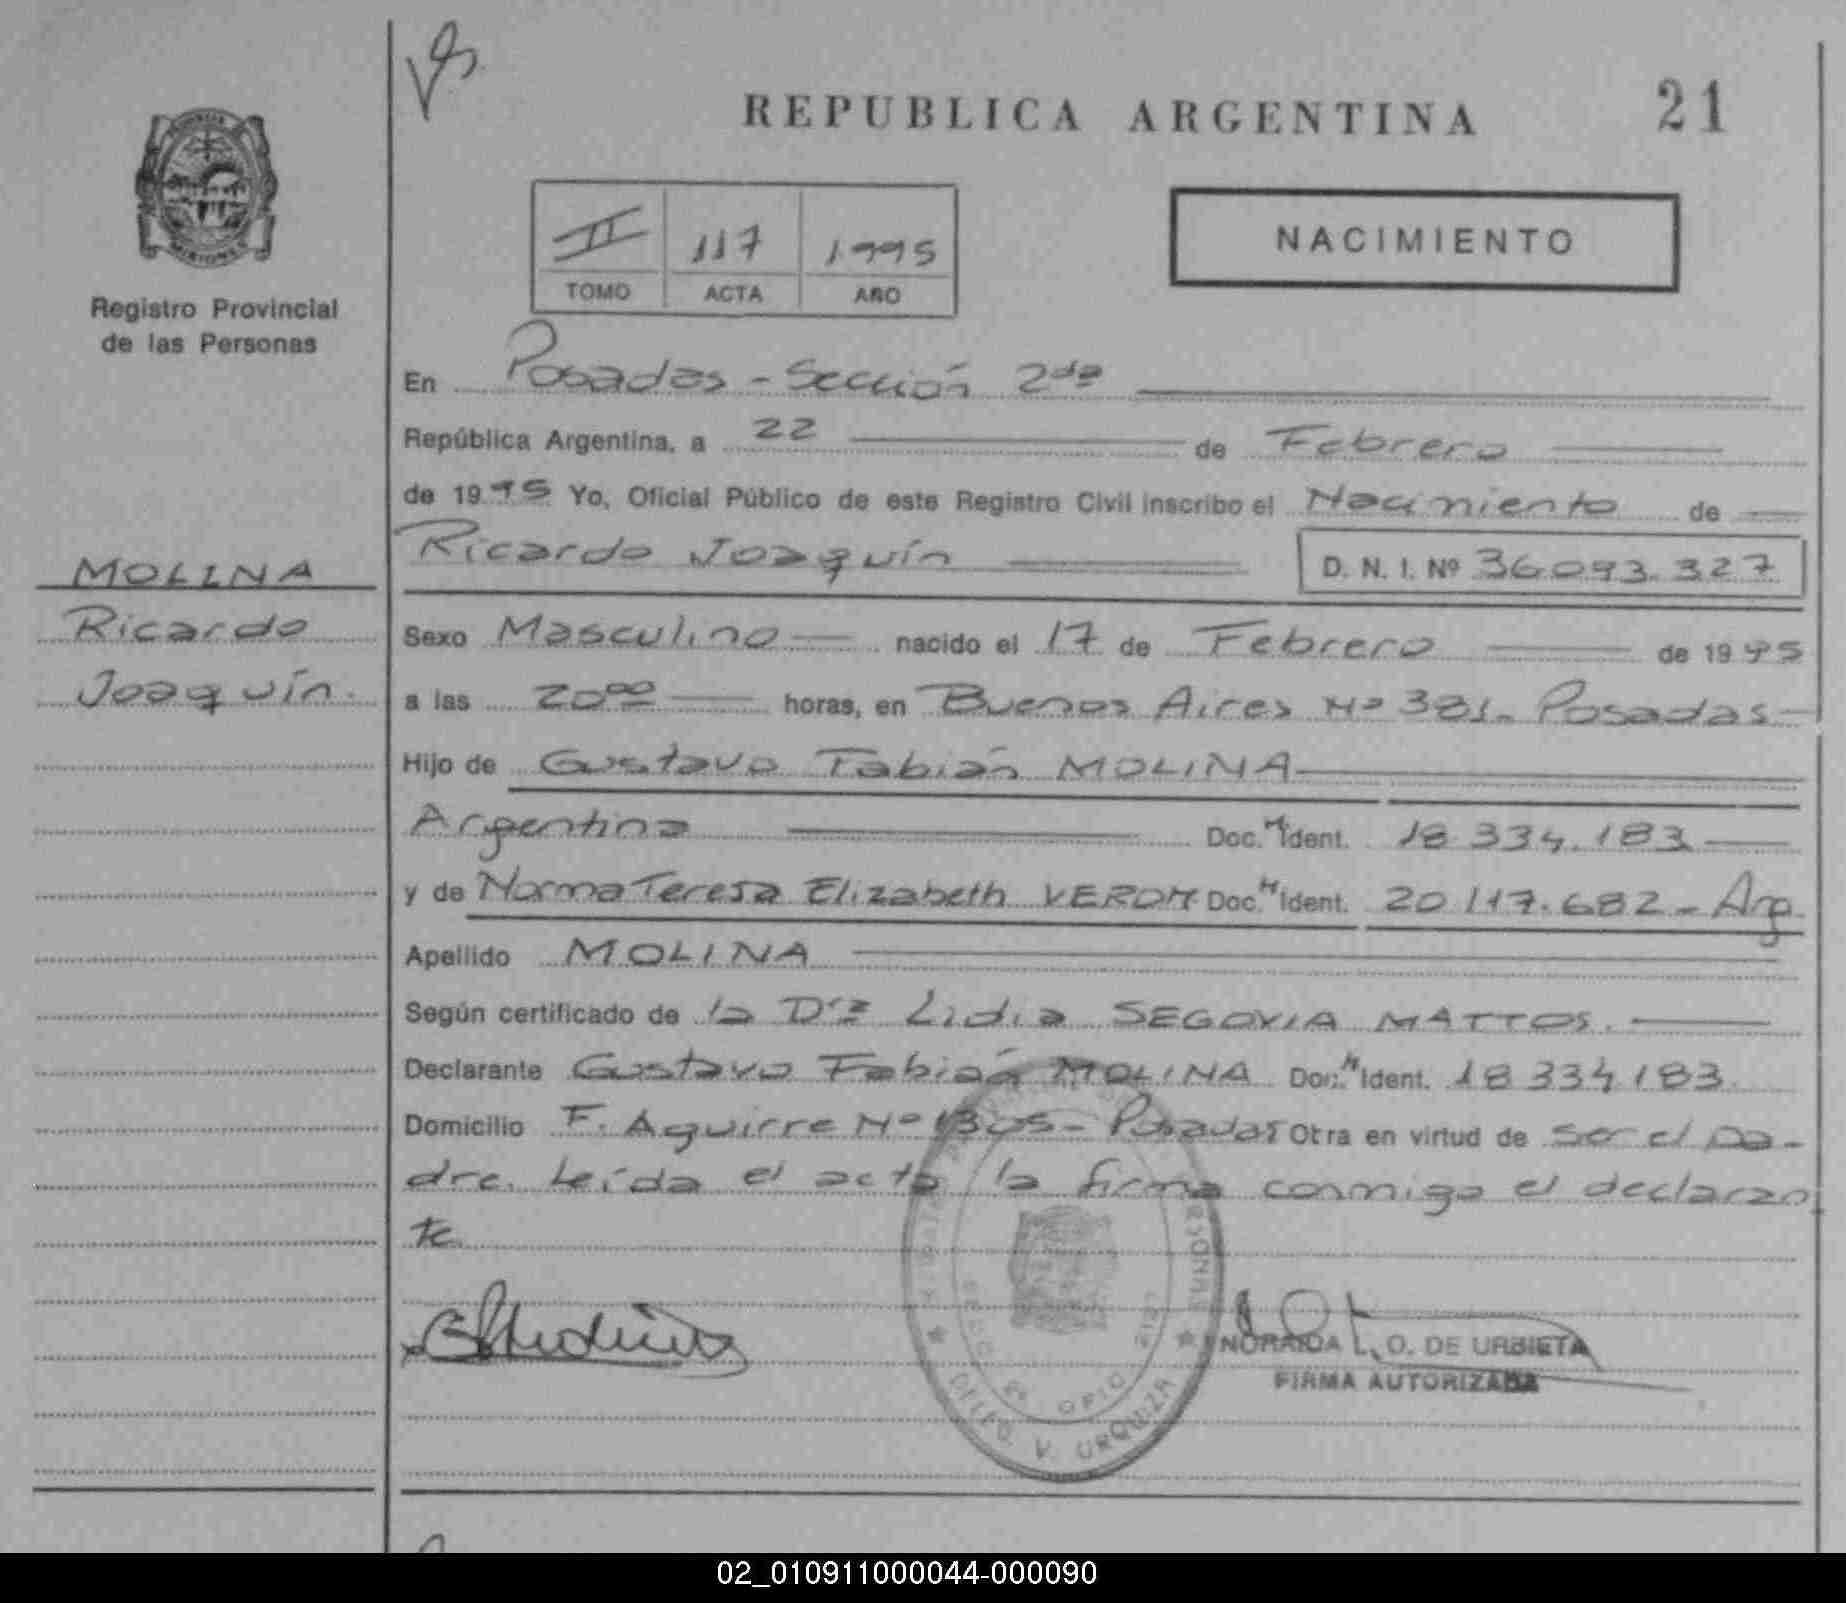 REPUBLICA ARGENTINA
21
MISIONES
Registro Provincial
de las Personas
II 117 1995
TOMO ACTA AÑO
NACIMIENTO
En Posadas - Sección 2da
República Argentina, a 22 de Febrero
de 1995 Yo, Oficial Público de este Registro Civil inscribo el Nacimiento de
Ricardo Joaquín D. N. I. Nº 36.093.327
MOLINA
Ricardo
Joaquín.
Sexo Masculino nacido el 17 de Febrero de 1995
a las 20⁰⁰ horas, en Buenos Aires Nº 381- Posadas-
Hijo de Gustavo Fabián MOLINA
Argentina Doc. N Ident. 18.334.183
y de Norma Teresa Elizabeth VERON Doc. N Ident. 20.117.682 - Arg.
Apellido MOLINA
Según certificado de la Dra Lidia SEGOVIA MATTOS.
Declarante Gustavo Fabián MOLINA Doc. N Ident. 18.334.183
Domicilio F. Aguirre Nº 1305- Posadas Otra en virtud de ser el pa-
dre. Leída el acta, la firma conmigo el declaran
te.
PERSONAS
DELEG. V. URQUIZA
NORAIDA L. O. DE URBIETA
FIRMA AUTORIZADA
02_010911000044-000090